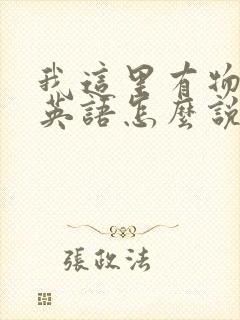 我這里有物
英語怎麼說
張政法